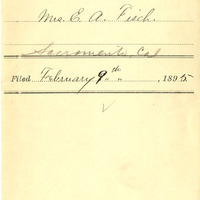 Mrs. E. A. Fisch.
Sacramento, Cal
Filed February 9th " " , 1895